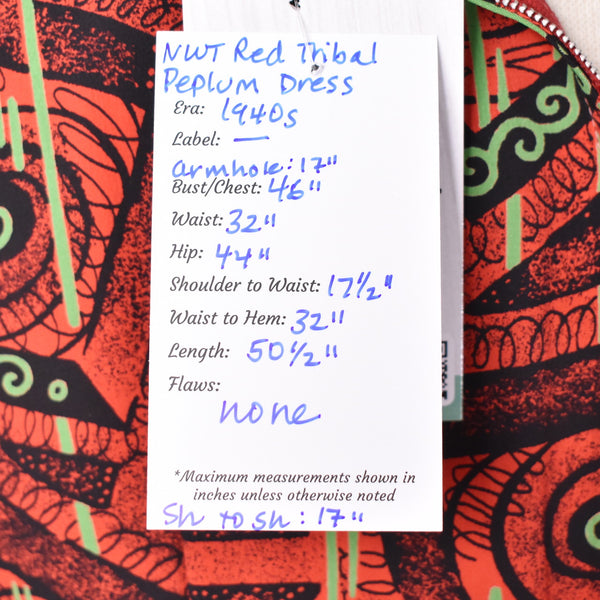 NWT Red Tribal
Peplum Dress
Era: 1940s
Label: —
armhole: 17"
Bust/Chest: 46"
Waist: 32"
Hip: 44"
Shoulder to Waist: 17 1/2"
Waist to Hem: 32"
Length: 50 1/2"
Flaws:
none
*Maximum measurements shown in
inches unless otherwise noted
Sh to sh: 17"